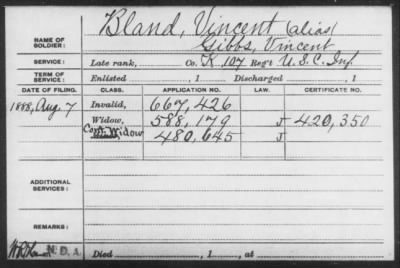 Bland, Vincent (alias)
NAME OF SOLDIER: Gibbs, Vincent
SERVICE: Late rank, Co. K 107 Reg't U.S.C. Inf.
TERM OF SERVICE: Enlisted , 1 Discharged , 1
DATE OF FILING. CLASS. APPLICATION NO. LAW. CERTIFICATE NO.
1888, Aug. 7 Invalid, 667,426
Widow, 588,179 J 420,350
Con. Widow 480,645 J
ADDITIONAL SERVICES:
REMARKS:
N. D. A. Died , 1 , at